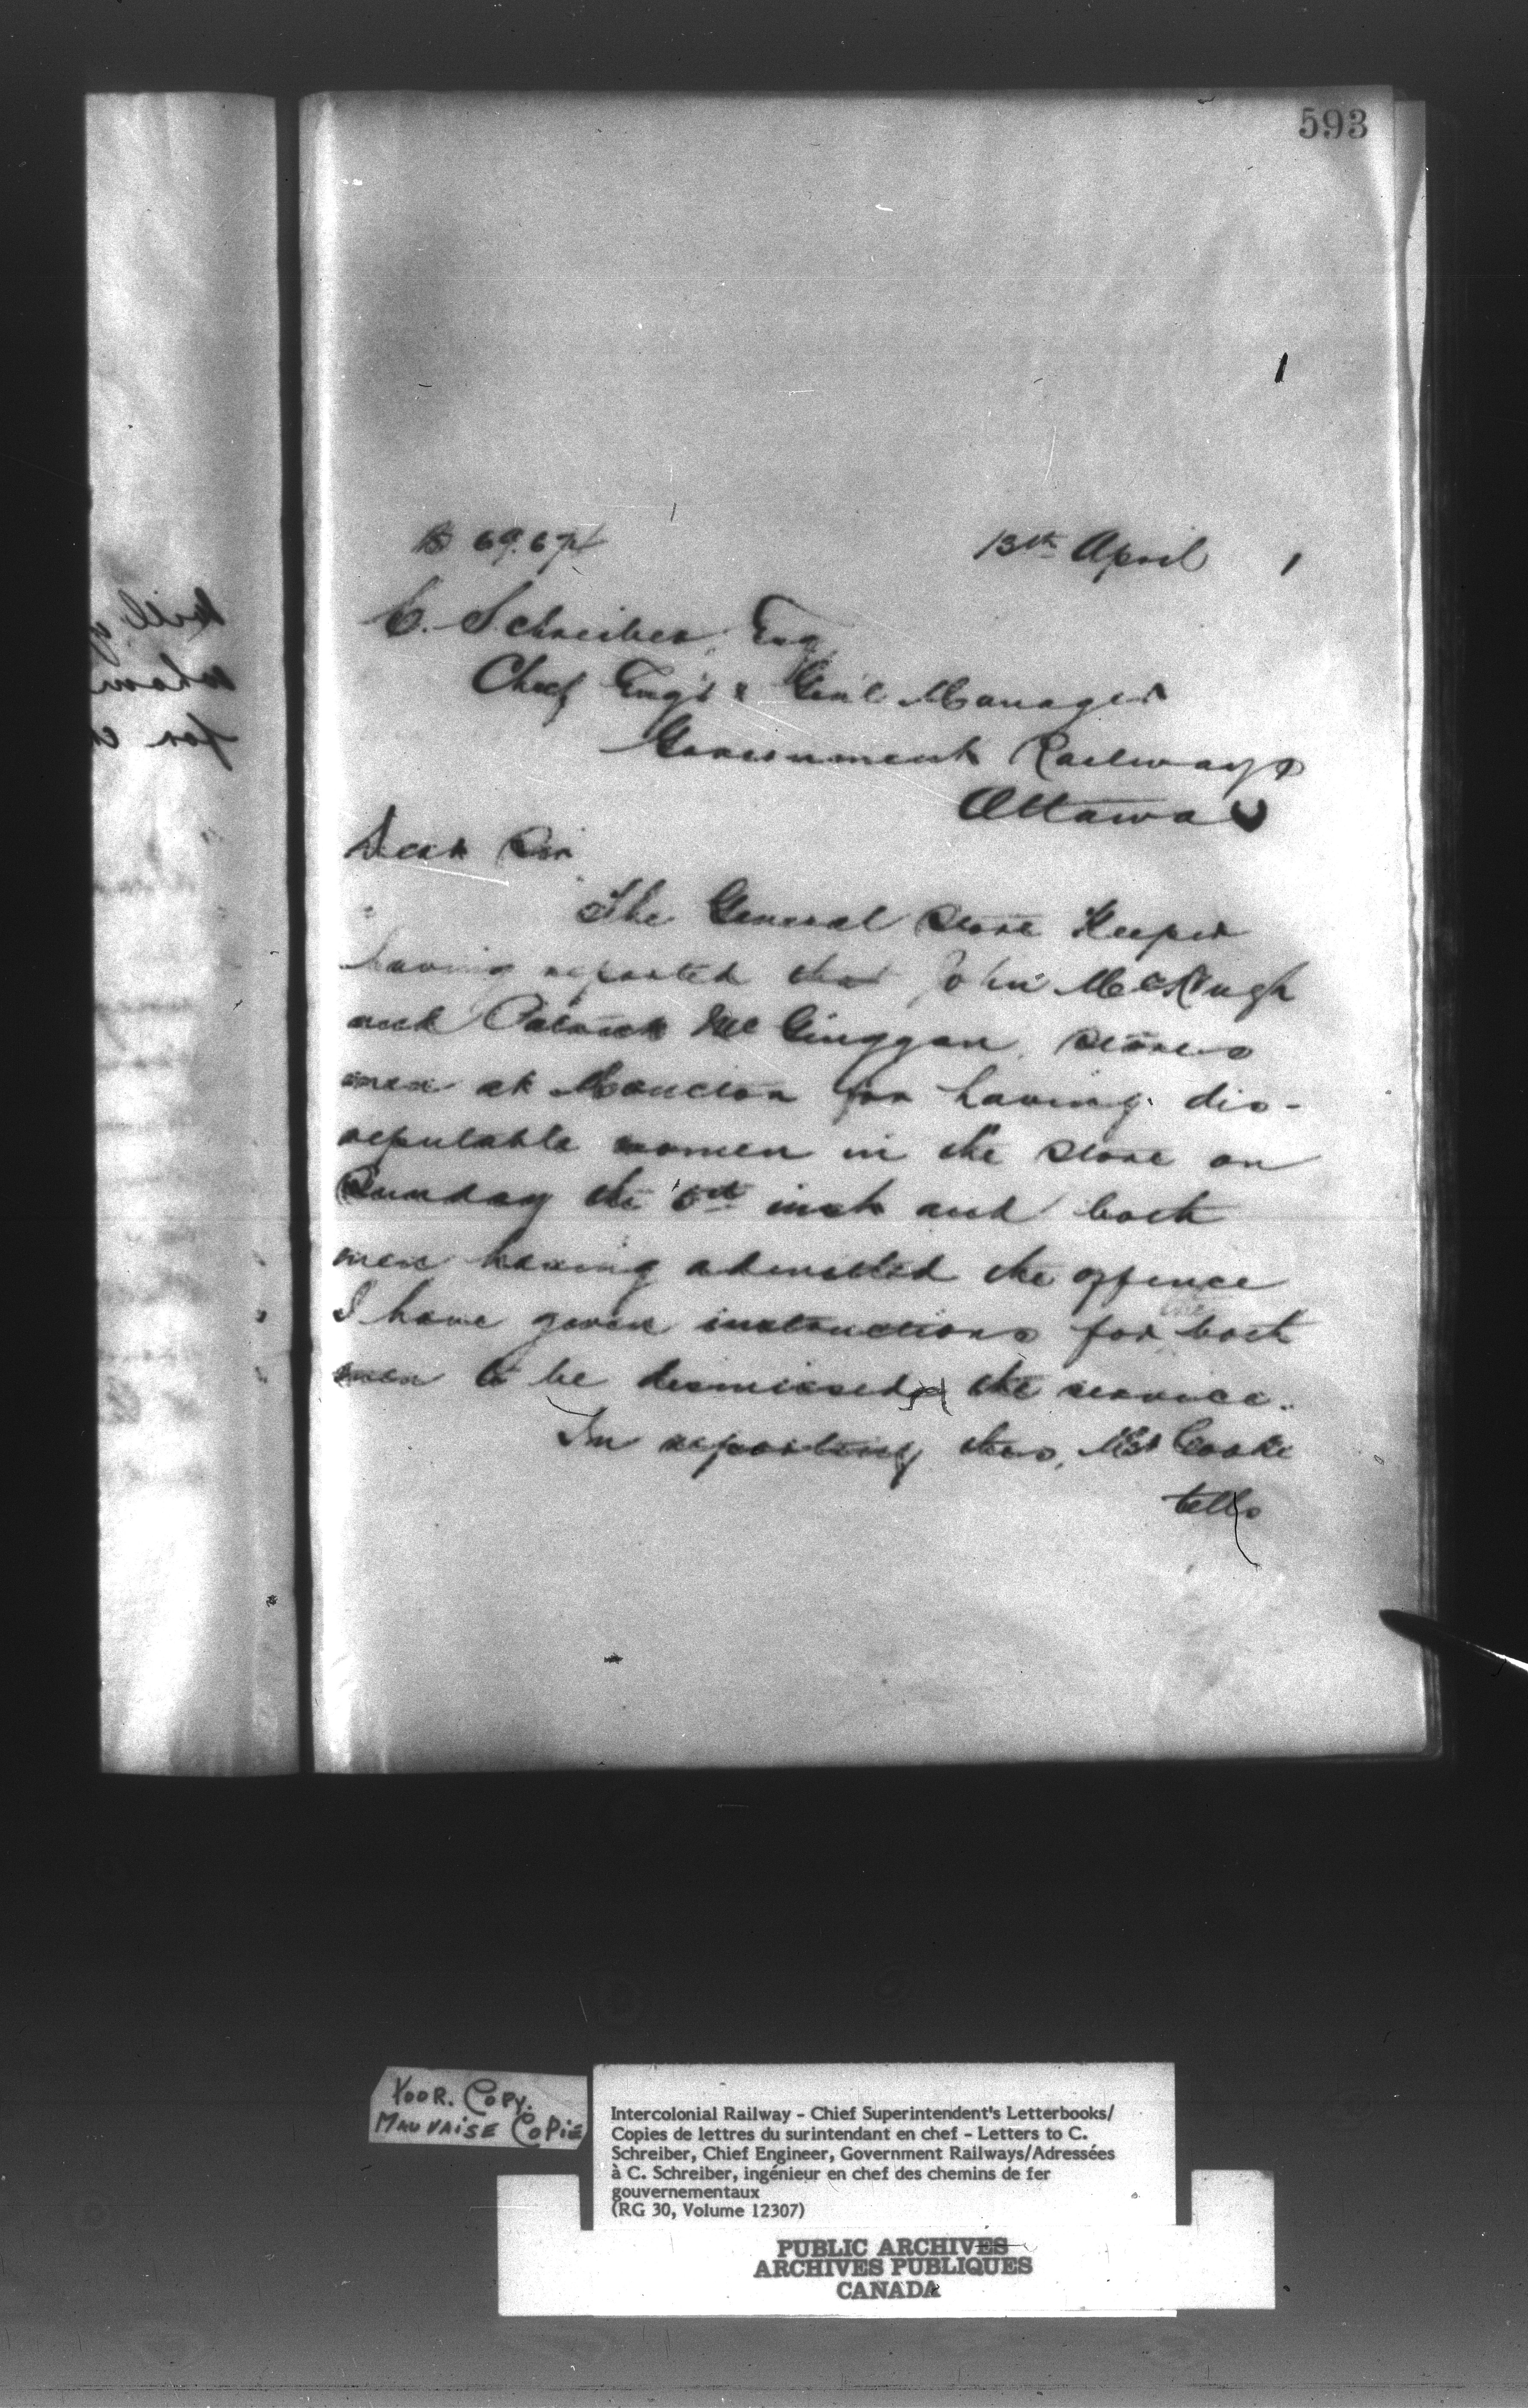 593
13th April
C. Schreiber, Esq
Chief Eng'r & Gen'l Manager
Government Railways
Ottawa
Dear Sir
The General Store Keeper
having reported that John McHugh
and Patrick McGinggan, stores
men at Moncton for having dis-
reputable women in the store on
Sunday the 6th inst and both
men having admitted the offence
I have given instructions for both
men to be dismissed the service.
In reporting this, Mr Cooke
tells
POOR. COPY.
MAUVAISE COPIE
Intercolonial Railway - Chief Superintendent's Letterbooks/
Copies de lettres du surintendant en chef - Letters to C.
Schreiber, Chief Engineer, Government Railways/Adressées
à C. Schreiber, ingénieur en chef des chemins de fer
gouvernementaux
(RG 30, Volume 12307)
PUBLIC ARCHIVES
ARCHIVES PUBLIQUES
CANADA